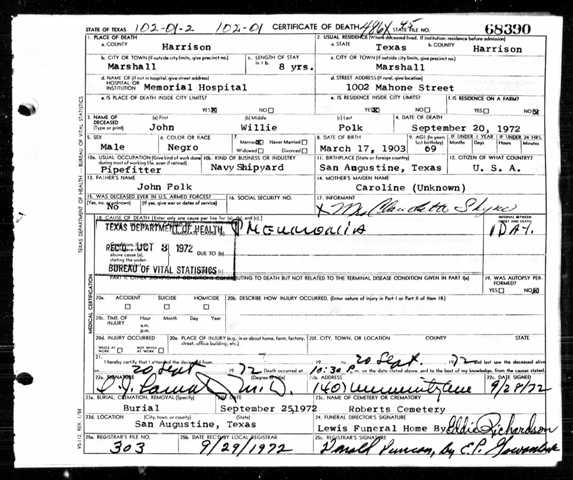 STATE OF TEXAS 102-01-2 102-01 CERTIFICATE OF DEATH STATE FILE NO. 68390
1. PLACE OF DEATH 2. USUAL RESIDENCE (Where deceased lived. If institution: residence before admission)
a. COUNTY Harrison a. STATE Texas b. COUNTY Harrison
b. CITY OR TOWN (If outside city limits, give precinct no.) c. LENGTH OF STAY in 1 b. c. CITY OR TOWN (If outside city limits, give precinct no.)
Marshall 8 yrs. Marshall
d. NAME OF (If not in hospital, give street address) HOSPITAL OR INSTITUTION Memorial Hospital d. STREET ADDRESS (If rural, give location) 1002 Mahone Street
e. IS PLACE OF DEATH INSIDE CITY LIMITS? YES NO e. IS RESIDENCE INSIDE CITY LIMITS? YES NO f. IS RESIDENCE ON A FARM? YES NO
3. NAME OF DECEASED (Type or print) (a) First (b) Middle (c) Last 4. DATE OF DEATH
John Willie Polk September 20, 1972
5. SEX 6. COLOR OR RACE 7. Married Never Married 8. DATE OF BIRTH 9. AGE (In years last birthday) IF UNDER 1 YEAR IF UNDER 24 HRS.
Male Negro Widowed Divorced March 17, 1903 69 Months Days Hours Minutes
10a. USUAL OCCUPATION (Give kind of work done during most of working life, even if retired) 10b. KIND OF BUSINESS OR INDUSTRY 11. BIRTHPLACE (State or foreign country) 12. CITIZEN OF WHAT COUNTRY?
Pipefitter Navy Shipyard San Augustine, Texas U. S. A.
13. FATHER'S NAME 14. MOTHER'S MAIDEN NAME
John Polk Caroline (Unknown)
15. WAS DECEASED EVER IN U.S. ARMED FORCES? 16. SOCIAL SECURITY NO. 17. INFORMANT
No
18. CAUSE OF DEATH (Enter only one cause per line for (a), (b), and (c).) INTERVAL BETWEEN ONSET AND DEATH
TEXAS DEPARTMENT OF HEALTH
REC'D OCT 8 1972
BUREAU OF VITAL STATISTICS
1 DAY.
above cause (a), stating the under- DUE TO (b)
DUE TO (c)
19. WAS AUTOPSY PERFORMED? YES NO
20a. ACCIDENT SUICIDE HOMICIDE 20b. DESCRIBE HOW INJURY OCCURRED. (Enter nature of injury in Part I or Part II of item 18.)
20c. TIME OF INJURY Hour Month Day Year a.m. p.m.
20d. INJURY OCCURRED WHILE AT WORK NOT WHILE AT WORK 20e. PLACE OF INJURY (e.g. in or about home, farm, factory, street, office building, etc.) 20f. CITY, TOWN, OR LOCATION COUNTY STATE
21. I hereby certify that I attended the deceased from 20 Sept 1972 to 20 Sept. 1972 and last saw the deceased alive
on 20 Sept 1972 Death occurred at 10:30 P. m. on the date stated above, and to the best of my knowledge, from the causes stated.
22a. SIGNATURE (Degree or title) 22b. ADDRESS 22c. DATE SIGNED
M.D. 1401 9/28/72
23a. BURIAL, CREMATION, REMOVAL (Specify) 23b. DATE 23c. NAME OF CEMETERY OR CREMATORY
Burial September 25, 1972 Roberts Cemetery
23d. LOCATION (City, town, or county) (State) 24. FUNERAL DIRECTOR'S SIGNATURE
San Augustine, Texas Lewis Funeral Home By Eddie Richardson
25a. REGISTRAR'S FILE NO. 25b. DATE REC'D BY LOCAL REGISTRAR 25c. REGISTRAR'S SIGNATURE
303 9/29/1972 Donald Duncan, by E.P.
TEXAS DEPARTMENT OF HEALTH BUREAU OF VITAL STATISTICS
MEDICAL CERTIFICATION